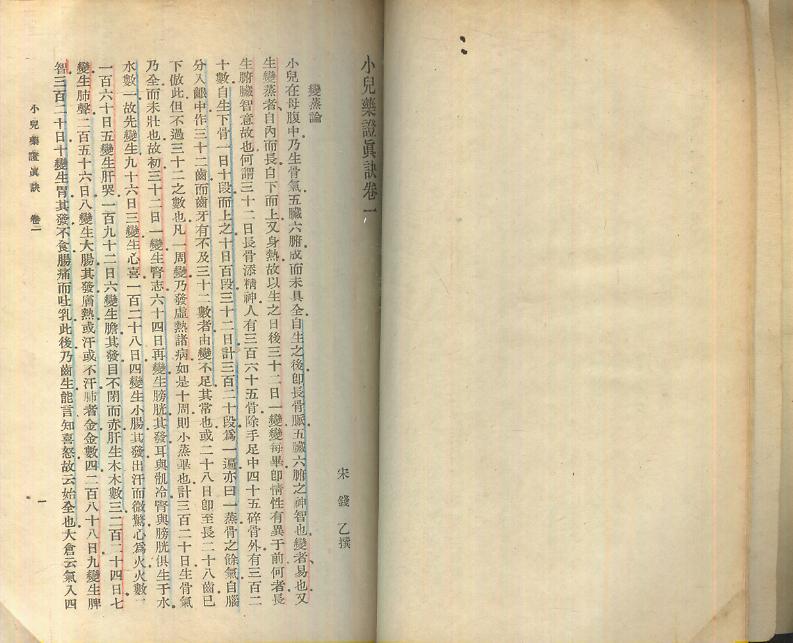 小兒藥證眞訣卷一
宋 錢 乙撰
變蒸論
小兒在母腹中乃生骨氣五臟六腑成而未具全自生之後卽長骨脈五臟六腑之神智也變者易也又
生變蒸者自內而長自下而上又身熱故以生之日後三十二日一變變每畢卽情性有異于前何者長
生腑臟智意故也何謂三十二日長骨添精神人有三百六十五骨除手足中四十五碎骨外有三百二
十數自生下骨一日十段而上之十日百段三十二日計三百二十段爲一遍亦曰一蒸骨之餘氣自腦
分入齦中作三十二齒而齒牙有不及三十二數者由變不足其常也或二十八日卽至長二十八齒已
下倣此但不過三十二之數也凡一周變乃發虛熱諸病如是十周則小蒸畢也計三百二十日生骨氣
乃全而未壯也故初三十二日一變生腎志六十四日再變生膀胱其發耳與骫冷腎與膀胱俱生于水
水數一故先變生九十六日三變生心喜一百二十八日四變生小腸其發出汗而微驚心爲火火數二
一百六十日五變生肝哭一百九十二日六變生膽其發目不閉而赤肝生木木數三二百二十四日七
變生肺聲二百五十六日八變生大腸其發膚熱或汗或不汗肺者金金數四二百八十八日九變生脾
智三百二十日十變生胃其發不食腸痛而吐乳此後乃齒生能言知喜怒故云始全也太倉云氣入四
小兒藥證眞訣 卷一
一